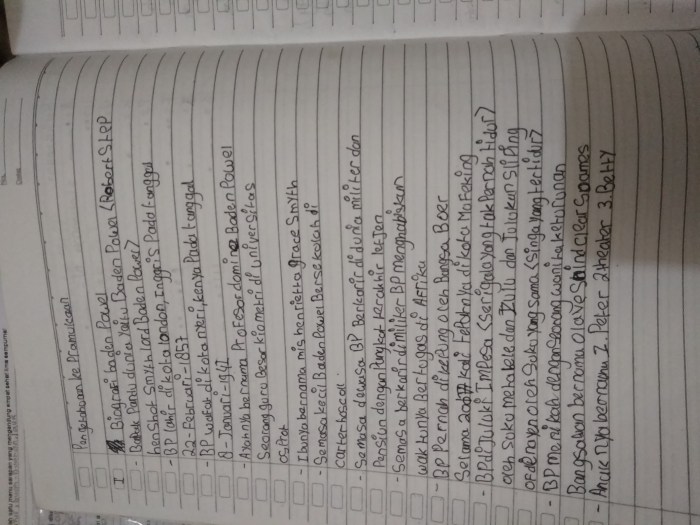 Pengetahuan ke Pramukaan
I Biografi baden Powel
- Bapak Pandu dunia yaitu Baden Powel (Robert STEP
henShot Smyth Lord Baden Powel)
- BP Lahir di kota London, Inggris Pada tanggal
22-Februari-1857
- BP wafat di kota nyeri, kenya Pada tanggal
8-Januari-1941
- Ayahnya bernama Profesor domine Baden Powel
Seorang guru besar kiometri di universitas
osfrot
- Ibunya bernama mis henrietta grace Smyth
- Semasa kecil Baden Powel Bersekolah di
carterhoscoll
- Semasa dewasa BP Berkarir di dunia militer dan
Pensiun dengan Pangkat terakhir letjen
- Semasa berkarir dimiliter BP menghabiskan
waktunya Bertugas di Afrika
- BP Pernah di kepung oleh Bangsa Boer
Selama hari Tepatnya di kota Mafeking
- BP di Juluki IMPesa (Serigala yang tak Pernah tidur)
oleh suku metabele dan zulu dan Julukan sliPing
of de rayen oleh Suku yang sama (singa yang tertidur)
- BP menikah dengan seorang wanita keturunan
Bangsawan bernama olave Saint clear Soames
- Anak nya bernama 1. Peter 2 theater 3. Betty